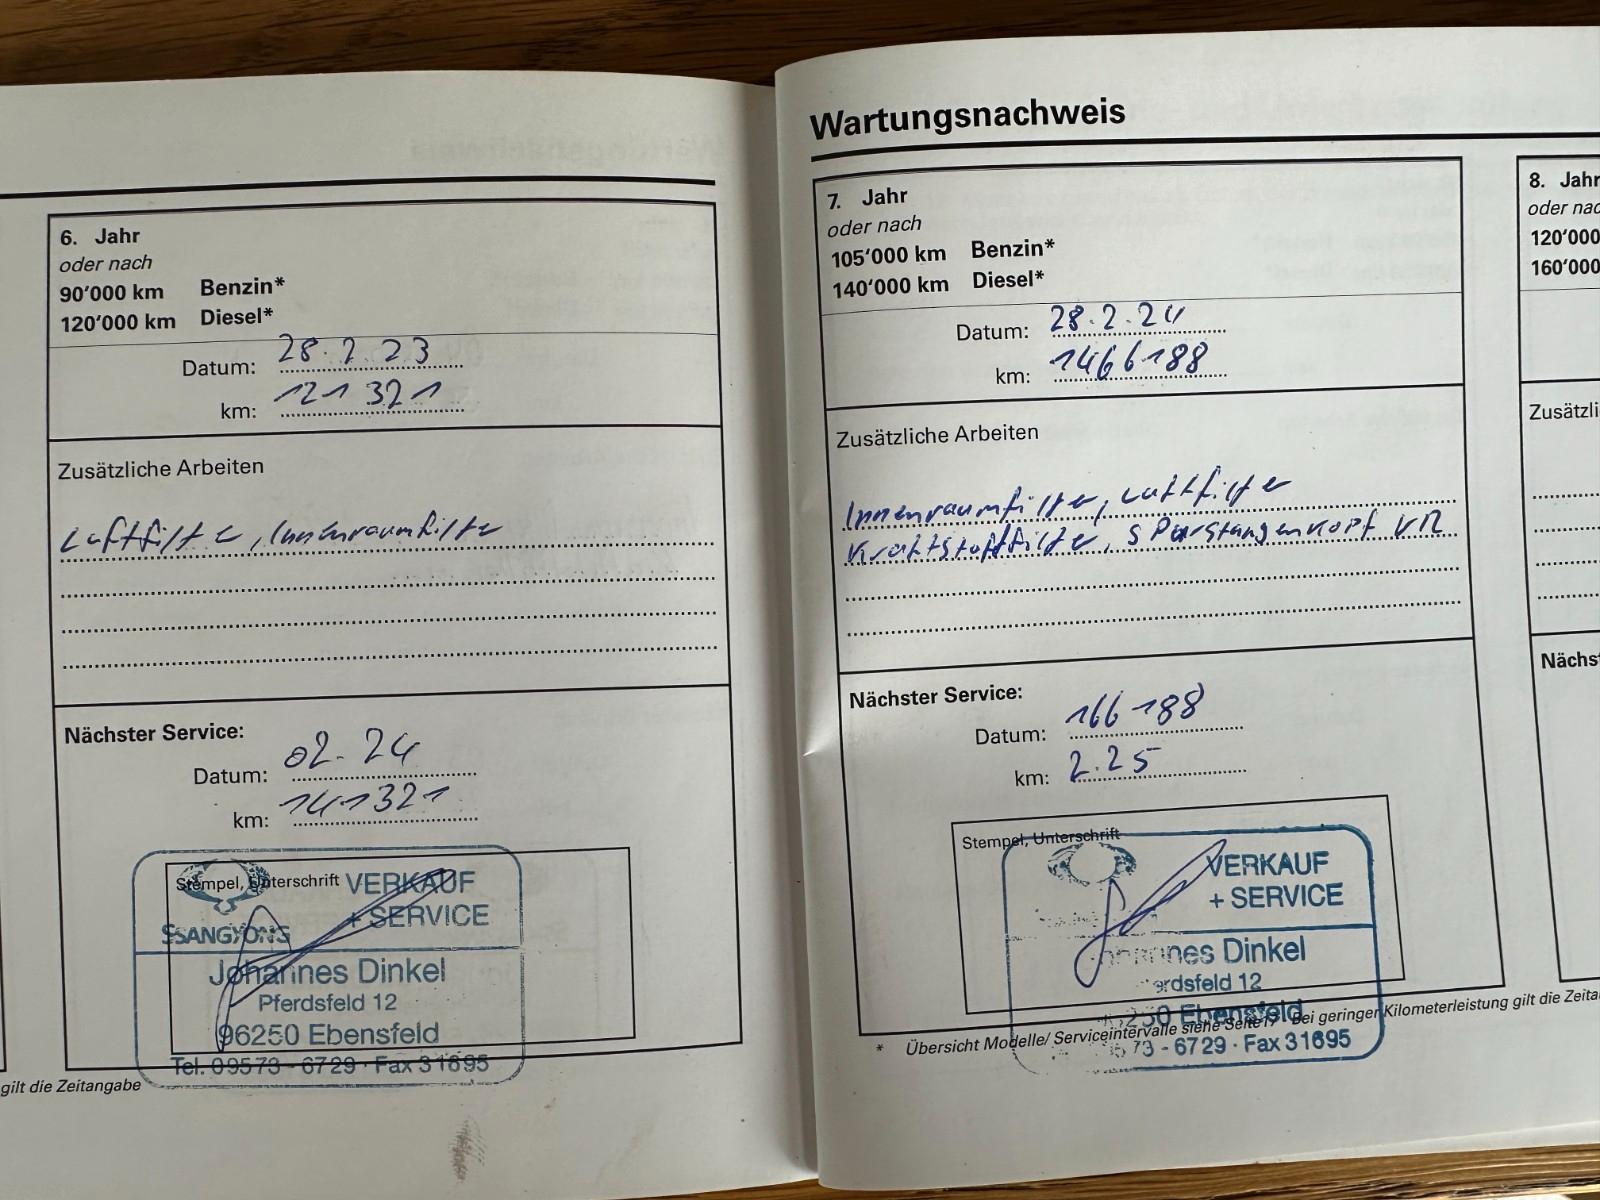 6. Jahr
oder nach
90'000 km Benzin*
120'000 km Diesel*
Datum: 28.2.23
km: 121 321
Zusätzliche Arbeiten
Luftfilter, Innenraumfilter
Nächster Service:
Datum: 02.24
km: 141321
Stempel, Unterschrift
VERKAUF
+ SERVICE
SSANGYONG
Johannes Dinkel
Pferdsfeld 12
96250 Ebensfeld
Tel. 09573 - 6729 · Fax 31695
gilt die Zeitangabe
Wartungsnachweis
7. Jahr
oder nach
105'000 km Benzin*
140'000 km Diesel*
Datum: 28.2.24
km: 1466188
Zusätzliche Arbeiten
Innenraumfilter, Luftfilter
Kraftstofffilter, SPurstangenkopf VR
Nächster Service:
Datum: 166188
km: 2.25
Stempel, Unterschrift
VERKAUF
+ SERVICE
Johannes Dinkel
erdsfeld 12
250 Ebensfeld
73 - 6729 · Fax 31695
* Übersicht Modelle/ Serviceintervalle siehe Seite Bei geringer Kilometerleistung gilt die
8. Jahr
oder nac
120'000
160'000
Zusätzli
Nächs